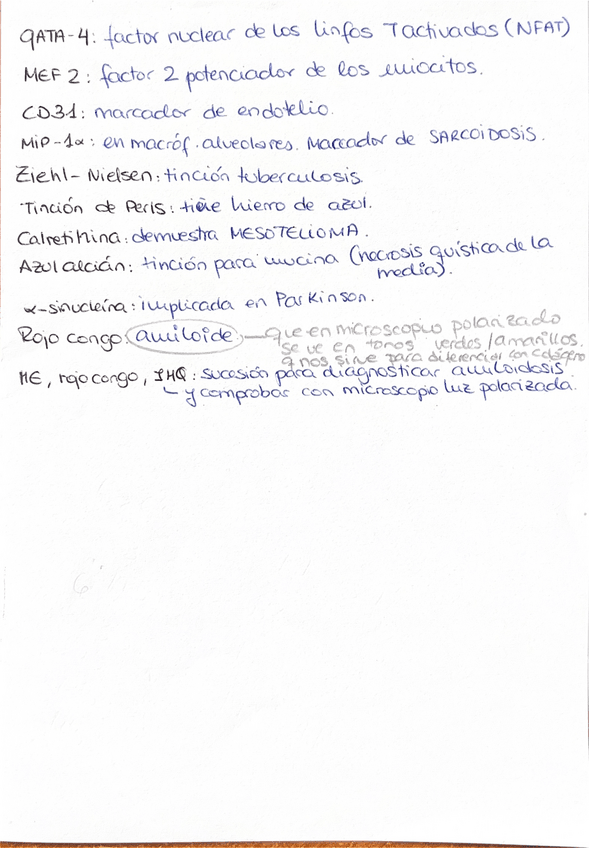 GATA-4: factor nuclear de los linfos T activados (NFAT)
MEF 2: factor 2 potenciador de los miocitos.
CD31: marcador de endotelio.
MiP-1α: en macróf. alveolares. Marcador de SARCOIDOSIS.
Ziehl-Nielsen: tinción tuberculosis.
Tinción de Perls: tiñe hierro de azul.
Calretinina: demuestra MESOTELIOMA.
Azul alcián: tinción para mucina (necrosis quística de la
media).
α-sinucleína: implicada en Parkinson.
Rojo congo: amiloide — que en microscopio polarizado
se ve en tonos verdes/amarillos.
q nos sirve para diferenciar con colágeno
HE, rojo congo, IHQ: sucesión para diagnosticar amiloidosis.
y comprobar con microscopio luz polarizada.